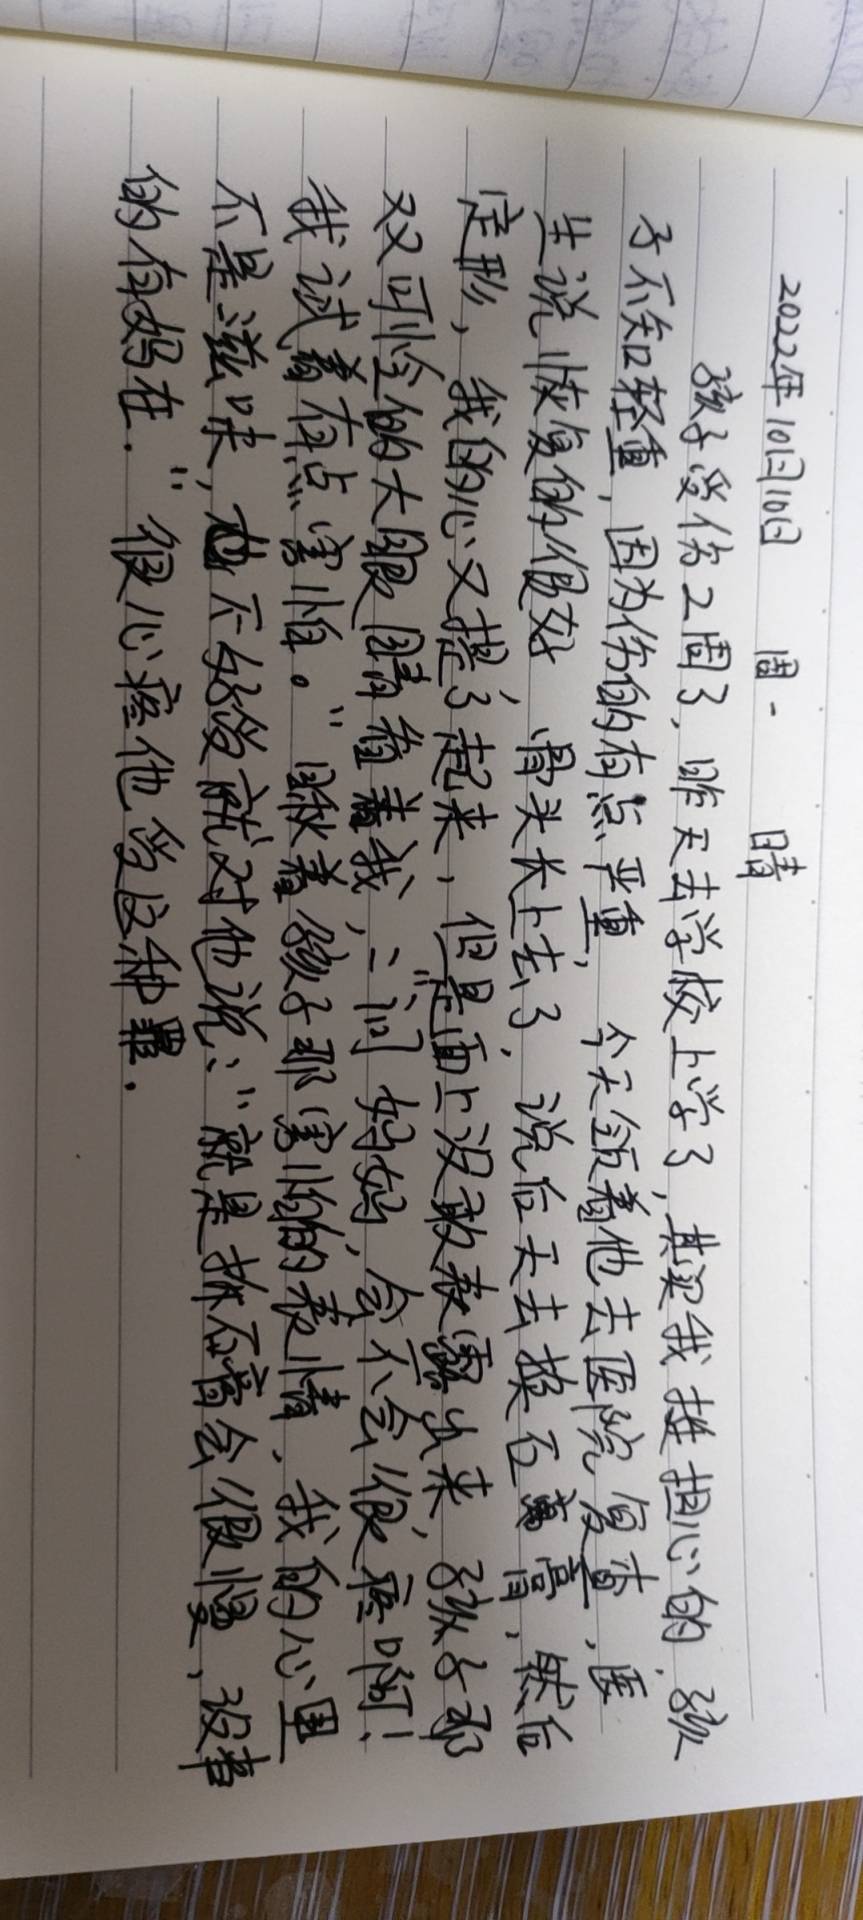 2022年10月10日 周一 晴
孩子受伤2周了，昨天去学校上学了，其实我挺担心的，孩
子不知轻重，因为伤的有点严重，今天领着他去医院复查，医
生说恢复的很好，骨头长上去了，说后天去换石膏，然后
定形，我的心又提了起来，但是面上没敢表露出来，孩子那
双可怜的大眼睛看着我，“问妈妈，会不会很疼啊！
我试着有点害怕。”瞅着孩子那害怕的表情，我的心里
不是滋味，也不好受就对他说：“就是拆石膏会很慢，没事
的有妈在.”很心疼他受这种罪.